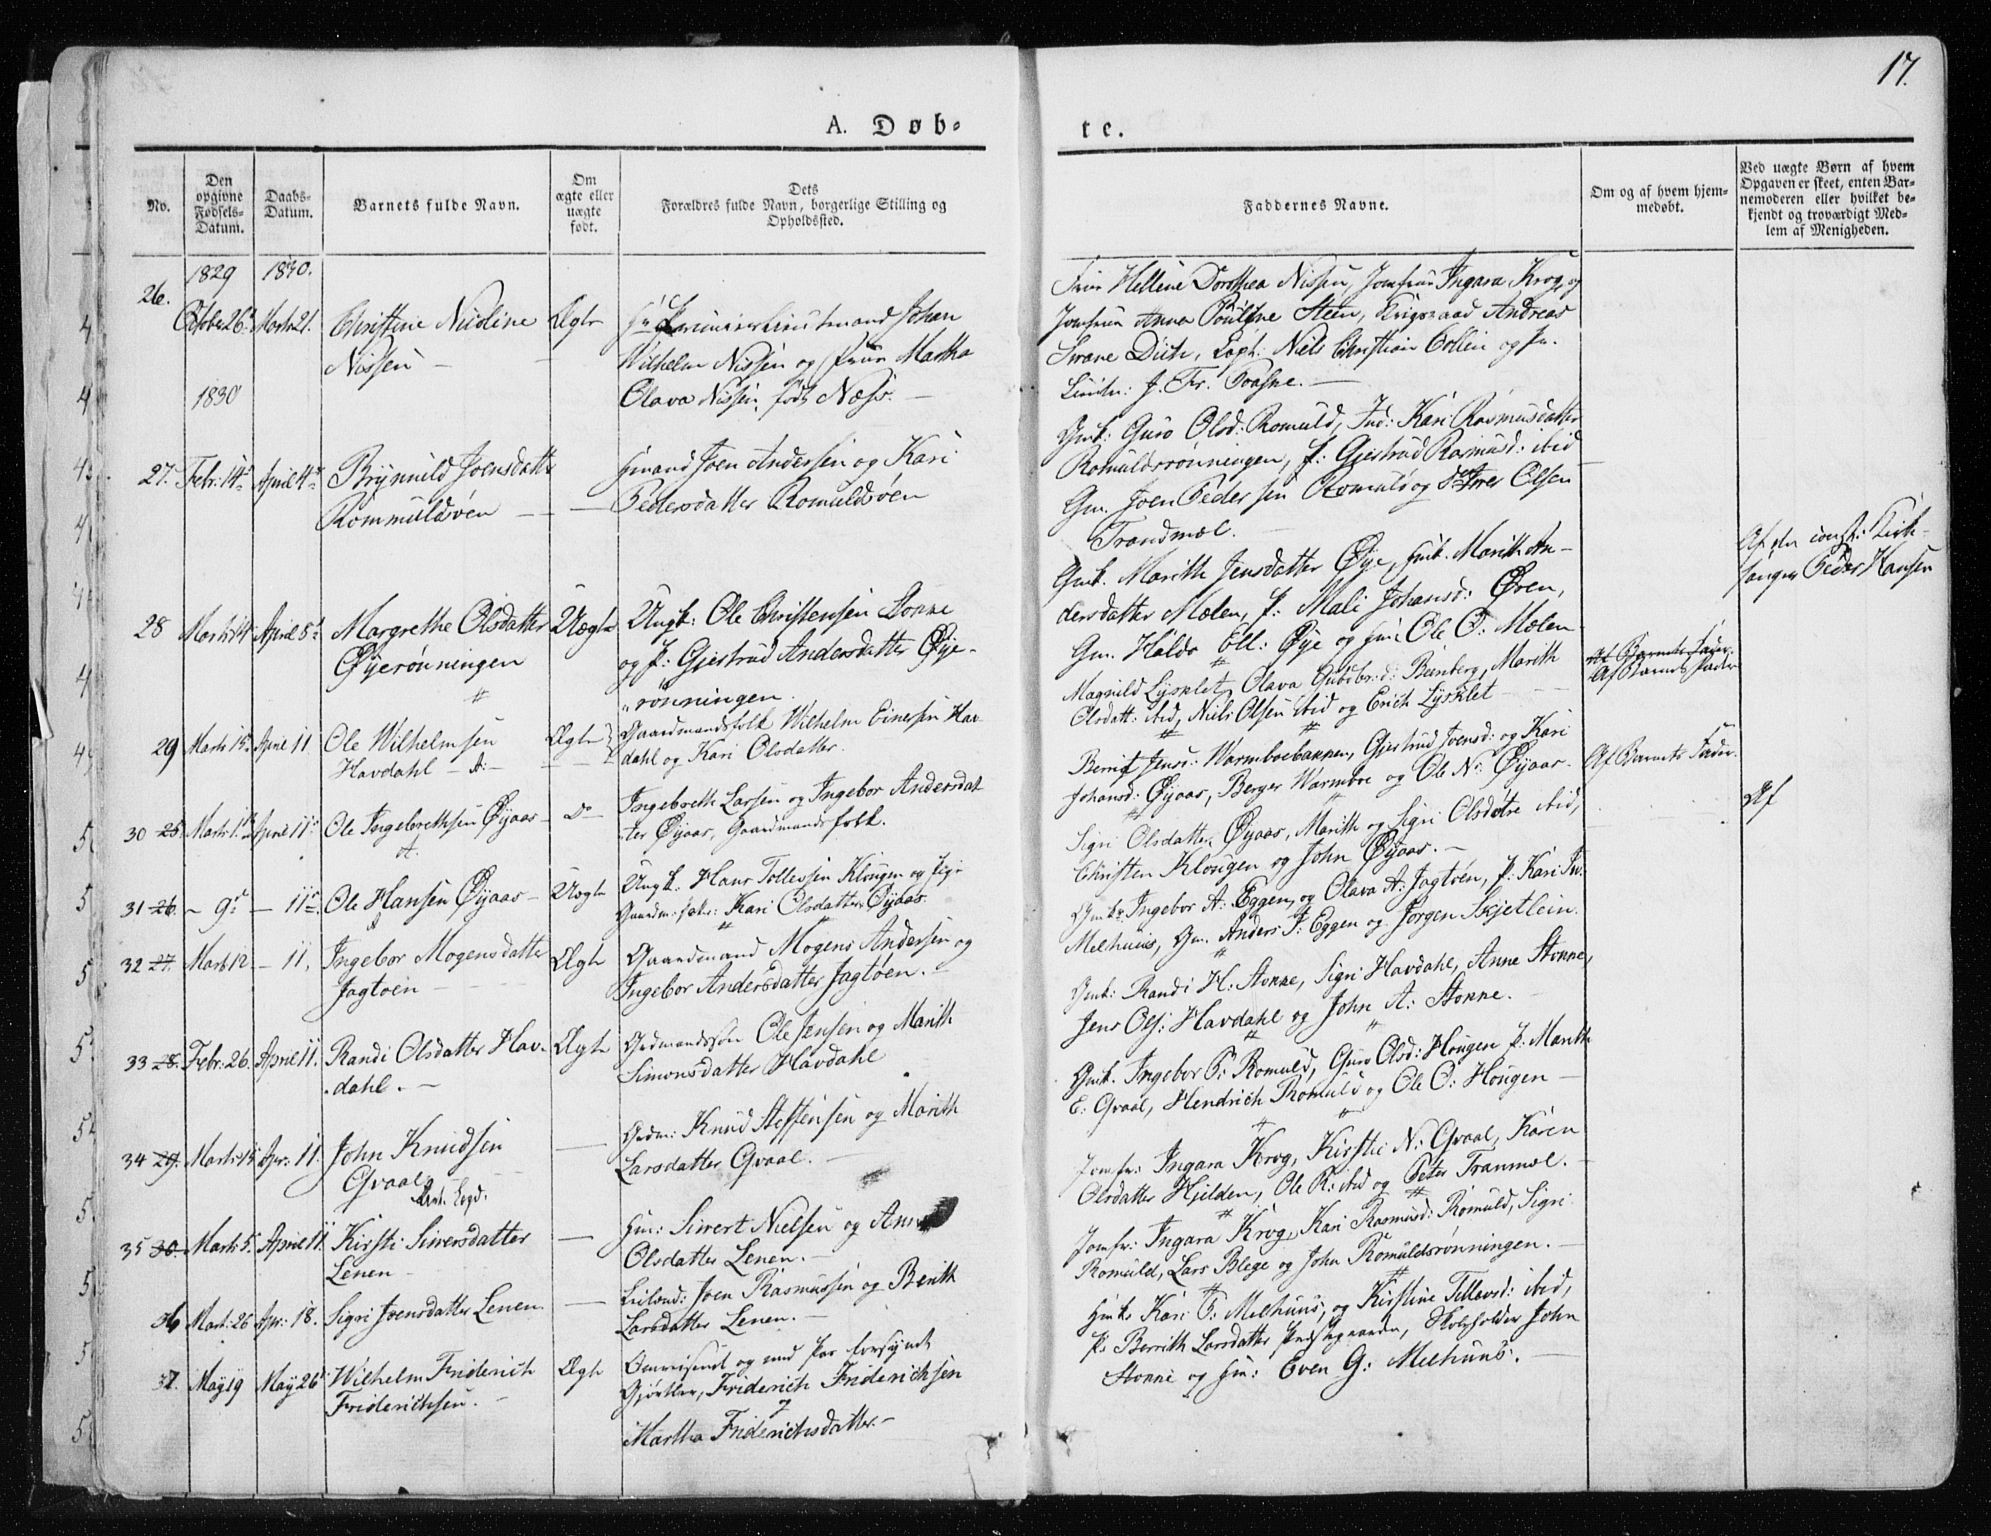 17.
A. Døb-
te.
No.
Den opgivne Fødsels-Datum.
Daabs-Datum.
Barnets fulde Navn.
Om ægte eller uægte født.
Dets Forældres fulde Navn, borgerlige Stilling og Opholdsted.
Faddernes Navne.
Om og af hvem hjem-medøbt.
Ved uægte Børn af hvem Opgaven er skeet, enten Bar-nemoderen eller hvilket be-kjendt og troværdigt Med-lem af Menigheden.
1829 1830.
26. October 26 Marts 21. Christine Nicoline Ægte
Nissen
Wilhelm Nissen og Frue Martha
Olava Nissen, født Næss.
Frue Hellene Dorothea Nissen, Jomfrue Ingara Krog, og
Jomfrue Anna Pouline Steen, Krigsraad Andreas
Capt: Niels Christian Collin og Pr.
1830
27. Febr: 14 April 4 Brynnild Joensdatter
Rommuldsøen
Gmand Joen Andersen og Kari
Pedersdatter Romuldsøen
Gmk: Guro Olsd: Romuld, Ind: Kari Rasmusdatter
Romuldsrønningen, P: Gjertrud Rasmusd: ibid
Gm. Joen Pedersen Romuld og Olsen
Tranmæl.
28 Marts 14 April 8 Margrethe Olsdatter Uægte
Øyerønningen
Ungk: Ole Christensen Lonne
og P: Gjertrud Andersdatter Øye-
rønningen.
Gmk. Marith Jensdatter Øye, Gmk. Marith An-
dersdatter Mælen, P: Mali Johansd: Øren,
Gm. Haldo Oll: Øye og Gm: Ole O: Mælen
Af den const: Kirk-
sanger Peder Hansen
29 Marts 15. April 11. Ole Wilhelmsen Ægte
Havdahl
Gaardmandsfolk Wilhelm Einersen Hav
dahl og Kari Olsdatter.
Magnild Lysklet, Olava Gulbr:d: Marith
Olsdatt: ibid, Niels Olsen ibid og Erich Lysklet
Af Barnets Fader
Af Barnets Fader
30 25. Marts April 11 Ole Ingebrethsen Øyaas do
Ingebreth Larsen og Ingebor Andersdat
ter Øyaas, Gaardmandsfolk.
Berrit Jensd: Warmboebakken, Gjertrud Joensd: og Kari
Johansd: Øyaas, Berger Warmboe og Ole N: Øyaas.
Af Barnets Fader.
Af
31 26. - 9 - 11 Ole Hansen Øyaas Uægte
Ungk: Hans Tollefsen Klougen og Pige
Kari Olsdatter Øyaas
Sigri Olsdatter Øyaas, Marith og Sigri Olsdøtre ibid,
Christen Klougen og John Øyaas.
32 27. Marts 12 - 11. Ingebor Mogensdatter Ægte
Jagtøen
Gaardmand Mogens Andersen og
Ingebor Andersdatter Jagtøen.
Gmk: Ingebor A: Eggen, og Olava A: Jagtøen, P: Kari
Melhuus, Gm. Anders J: Eggen og Jørgen Skjetlein.
33 28. Febr: 26. April 11. Randi Olsdatter Hav- Ægte
dahl.
Grdmandssøn Ole Jensen og Marith
Simonsdatter Havdahl
Gmk: Randi H: Stonne, Sigri Havdahl, Anne Stonne,
Jens Ols: Havdahl og John A: Stonne.
34 29. Marts 15 Apr: 11. John Knudsen
Gvaal
Grdm: Knud Steffensen og Marith
Larsdatter Gvaal.
Gmk. Ingebor P: Romuld, Guro Olsd: Hougen P: Marith
E: Gvaal, Hendrich Romuld og Ole O: Hougen
35 30. Marts 5. April 11 Kirsti Siwersdatter
Lenen
Hm: Siwert Nielsen og Anne
Olsdatter Lenen.
Jomfr: Ingara Krog, Kirstie N: Gvaal, Karen
Olsdatter Hjelden, Ole R: ibid og Peter Tranmæl.
36 Mart: 26 Apr: 18. Sigri Joensdatter Lenen
Leilend: Joen Rasmussen og Berith
Larsdatter Lenen.
Jomfr: Ingara Krog, Kari Rasmusd: Romuld, Sigri
Romuld, Lars Blege og John Romuldsrønningen.
37. May 19 May 26 Wilhelm Friderich Ægte
Friderichsen.
Omreisende og med Pas forsynet
Gjørtler, Friderich Friderichsen
Martha Friderichsdatter.
Gmk: Kari P: Melhuus, og Kirstine Tellevsd: ibid,
P: Berrith Larsdatter Præstegaarden, Skoleholder John
Stonne og Gm: Even G: Melhuus.